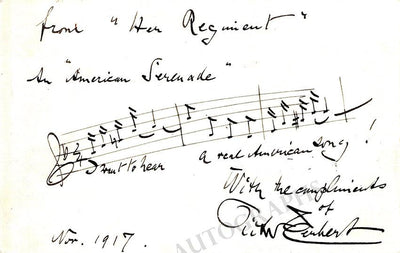 from "Her Regiment"
An "American Serenade"
I want to hear a real American song!
With the compliments
of
Victor Herbert
Nov. 1917.
AUTOGRAPHS